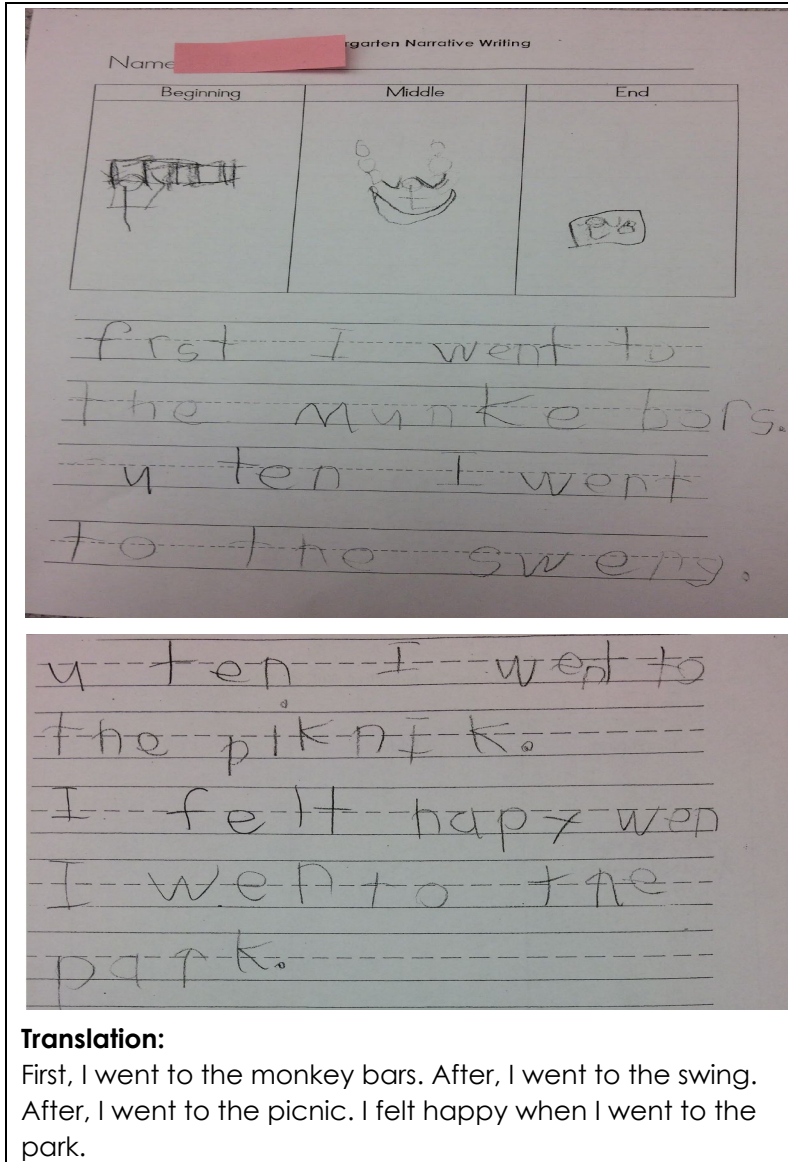 rgarten Narrative Writing
Name
Beginning Middle End
frst I went to
the munke bars.
u ten I went
to the sweng.
u ten I went to
the piknik.
I felt hapy wen
I wento the
park.
Translation:
First, I went to the monkey bars. After, I went to the swing.
After, I went to the picnic. I felt happy when I went to the
park.